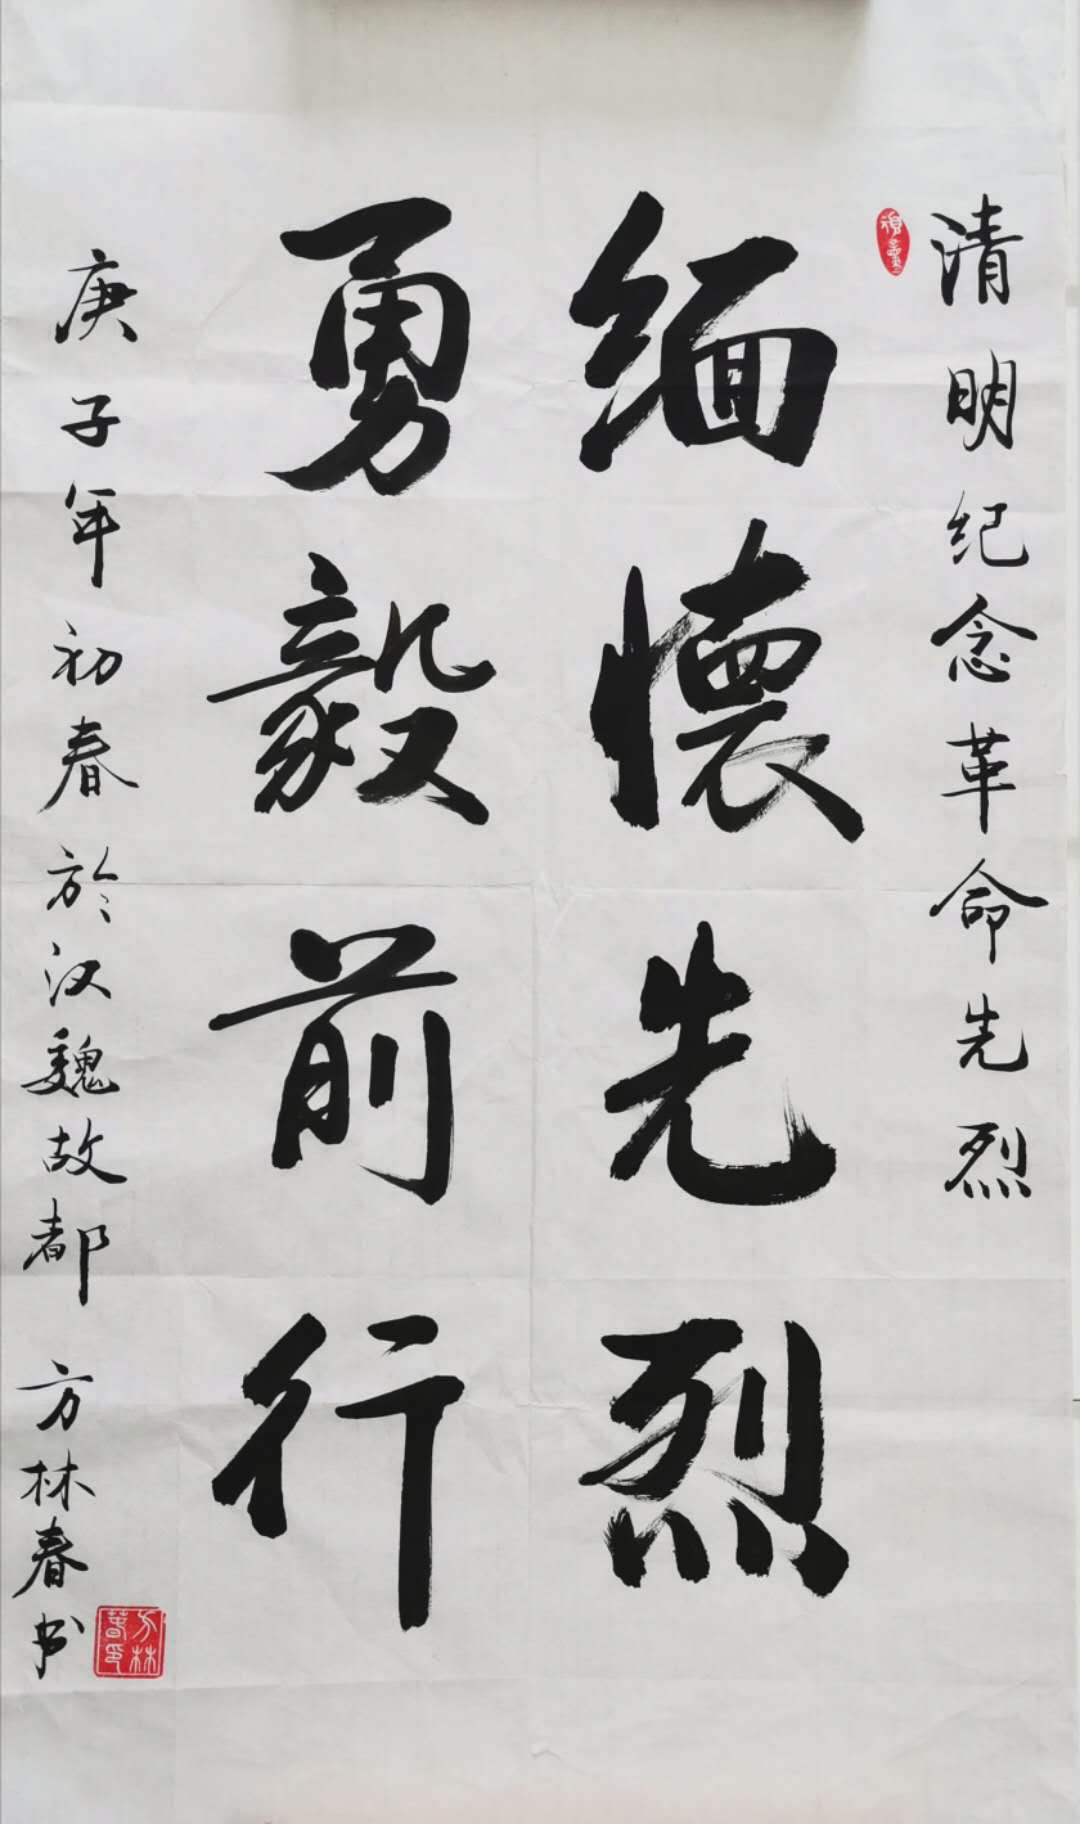 清明纪念革命先烈
缅懷先烈
勇毅前行
庚子年初春於汉魏故都 方林春书
方林春印